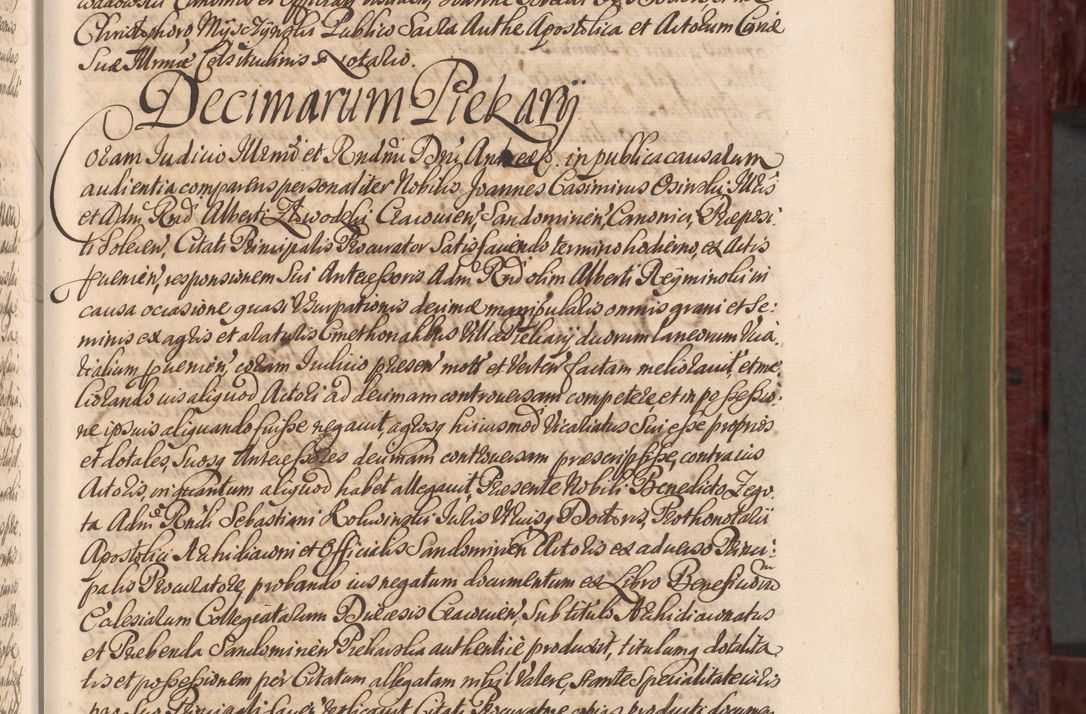 Christophoro Mÿszÿnski Publico Sacra Authe Apostolica et Actorum Curiæ
Suæ Illmæ Celsitudinis Notario.
Decimarum Piekarÿ
Coram Judicio Illmi et Rndmi Dni in publica causarum
audientia comparens personaliter Nobilis Joannes Casimirus Osinski Illris
et Adm Rnd Alberti Zawodzki Cracovien, Sandomirien, Canonici, Præposi
ti Solecen, Citati Principalis Procurator Satisfaciendo termino hodierno, ex Actis
fluenien, responsionem Sui Antecessoris Adm Rnd olim Alberti Reÿminski in
causa occasione quasi Usurpationis decimæ manipulalis omnis grani et se:
minis ex agris et aratulis Cmethonalibus Villæ Piekarÿ duorum laneorum Vica
rialium fluenien, coram Judicio præsen mott et Verten factam melioravit, et me
liorando ius aliquod Actori ad decimam controversam competere, et in possessio
ne ipsius aliquando fuisse negavit, agrosq huiusmod Vicariatus Sui esse proprios
et dotales, Suosq Antecessores decimam controversam præscripsisse, contra ius
Actoris, in quantum aliquod habet allegavit, Præsente Nobili Benedicto Zego
ta Adm Rndi Sebastiani Kolwinski Juris Utriusq Doctoris, Prothonotarii
Apostolici Archidiaconi et Officialis Sandomirien Actoris ex adverso Princi:
palis Procuratore, probando ius negatum documentum ex Libro Beneficiorum
Eclesiarum Collegiatarum Diæcesis Cracovien, Sub titulo Archidiaconatus
et Præbenda Sandomirien Piekarska authenticè produxit, titulumq dotalita
tis et possessionem per Citatum allegatam nihil Valere, Stante Specialitate iuris